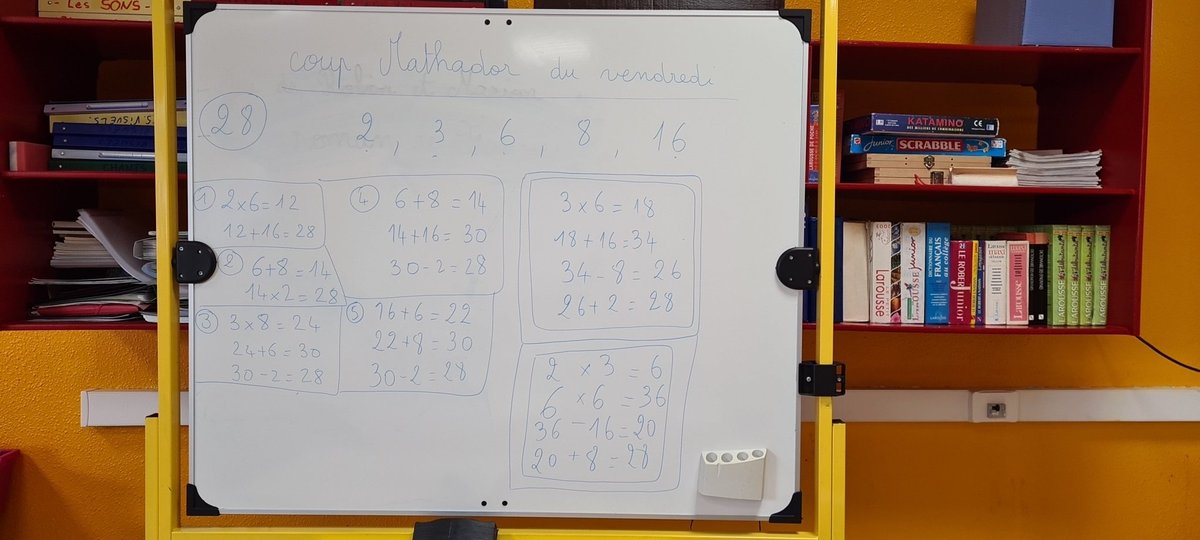 Les SONS
coup Mathador du vendredi
28
2, 3, 6, 8, 16
① 2x6=12
12+16=28
② 6+8=14
14x2=28
③ 3x8=24
24+6=30
30-2=28
④ 6+8=14
14+16=30
30-2=28
⑤ 16+6=22
22+8=30
30-2=28
3x6=18
18+16=34
34-8=26
26+2=28
2x3=6
6x6=36
36-16=20
20+8=28
KATAMINO
Junior SCRABBLE
Larousse
LAROUSSE junior
DICTIONNAIRE DU
FRANÇAIS
au collège
LE ROBERT
Junior
Larousse
LAROUSSE
LAROUSSE
LAROUSSE
LAROUSSE